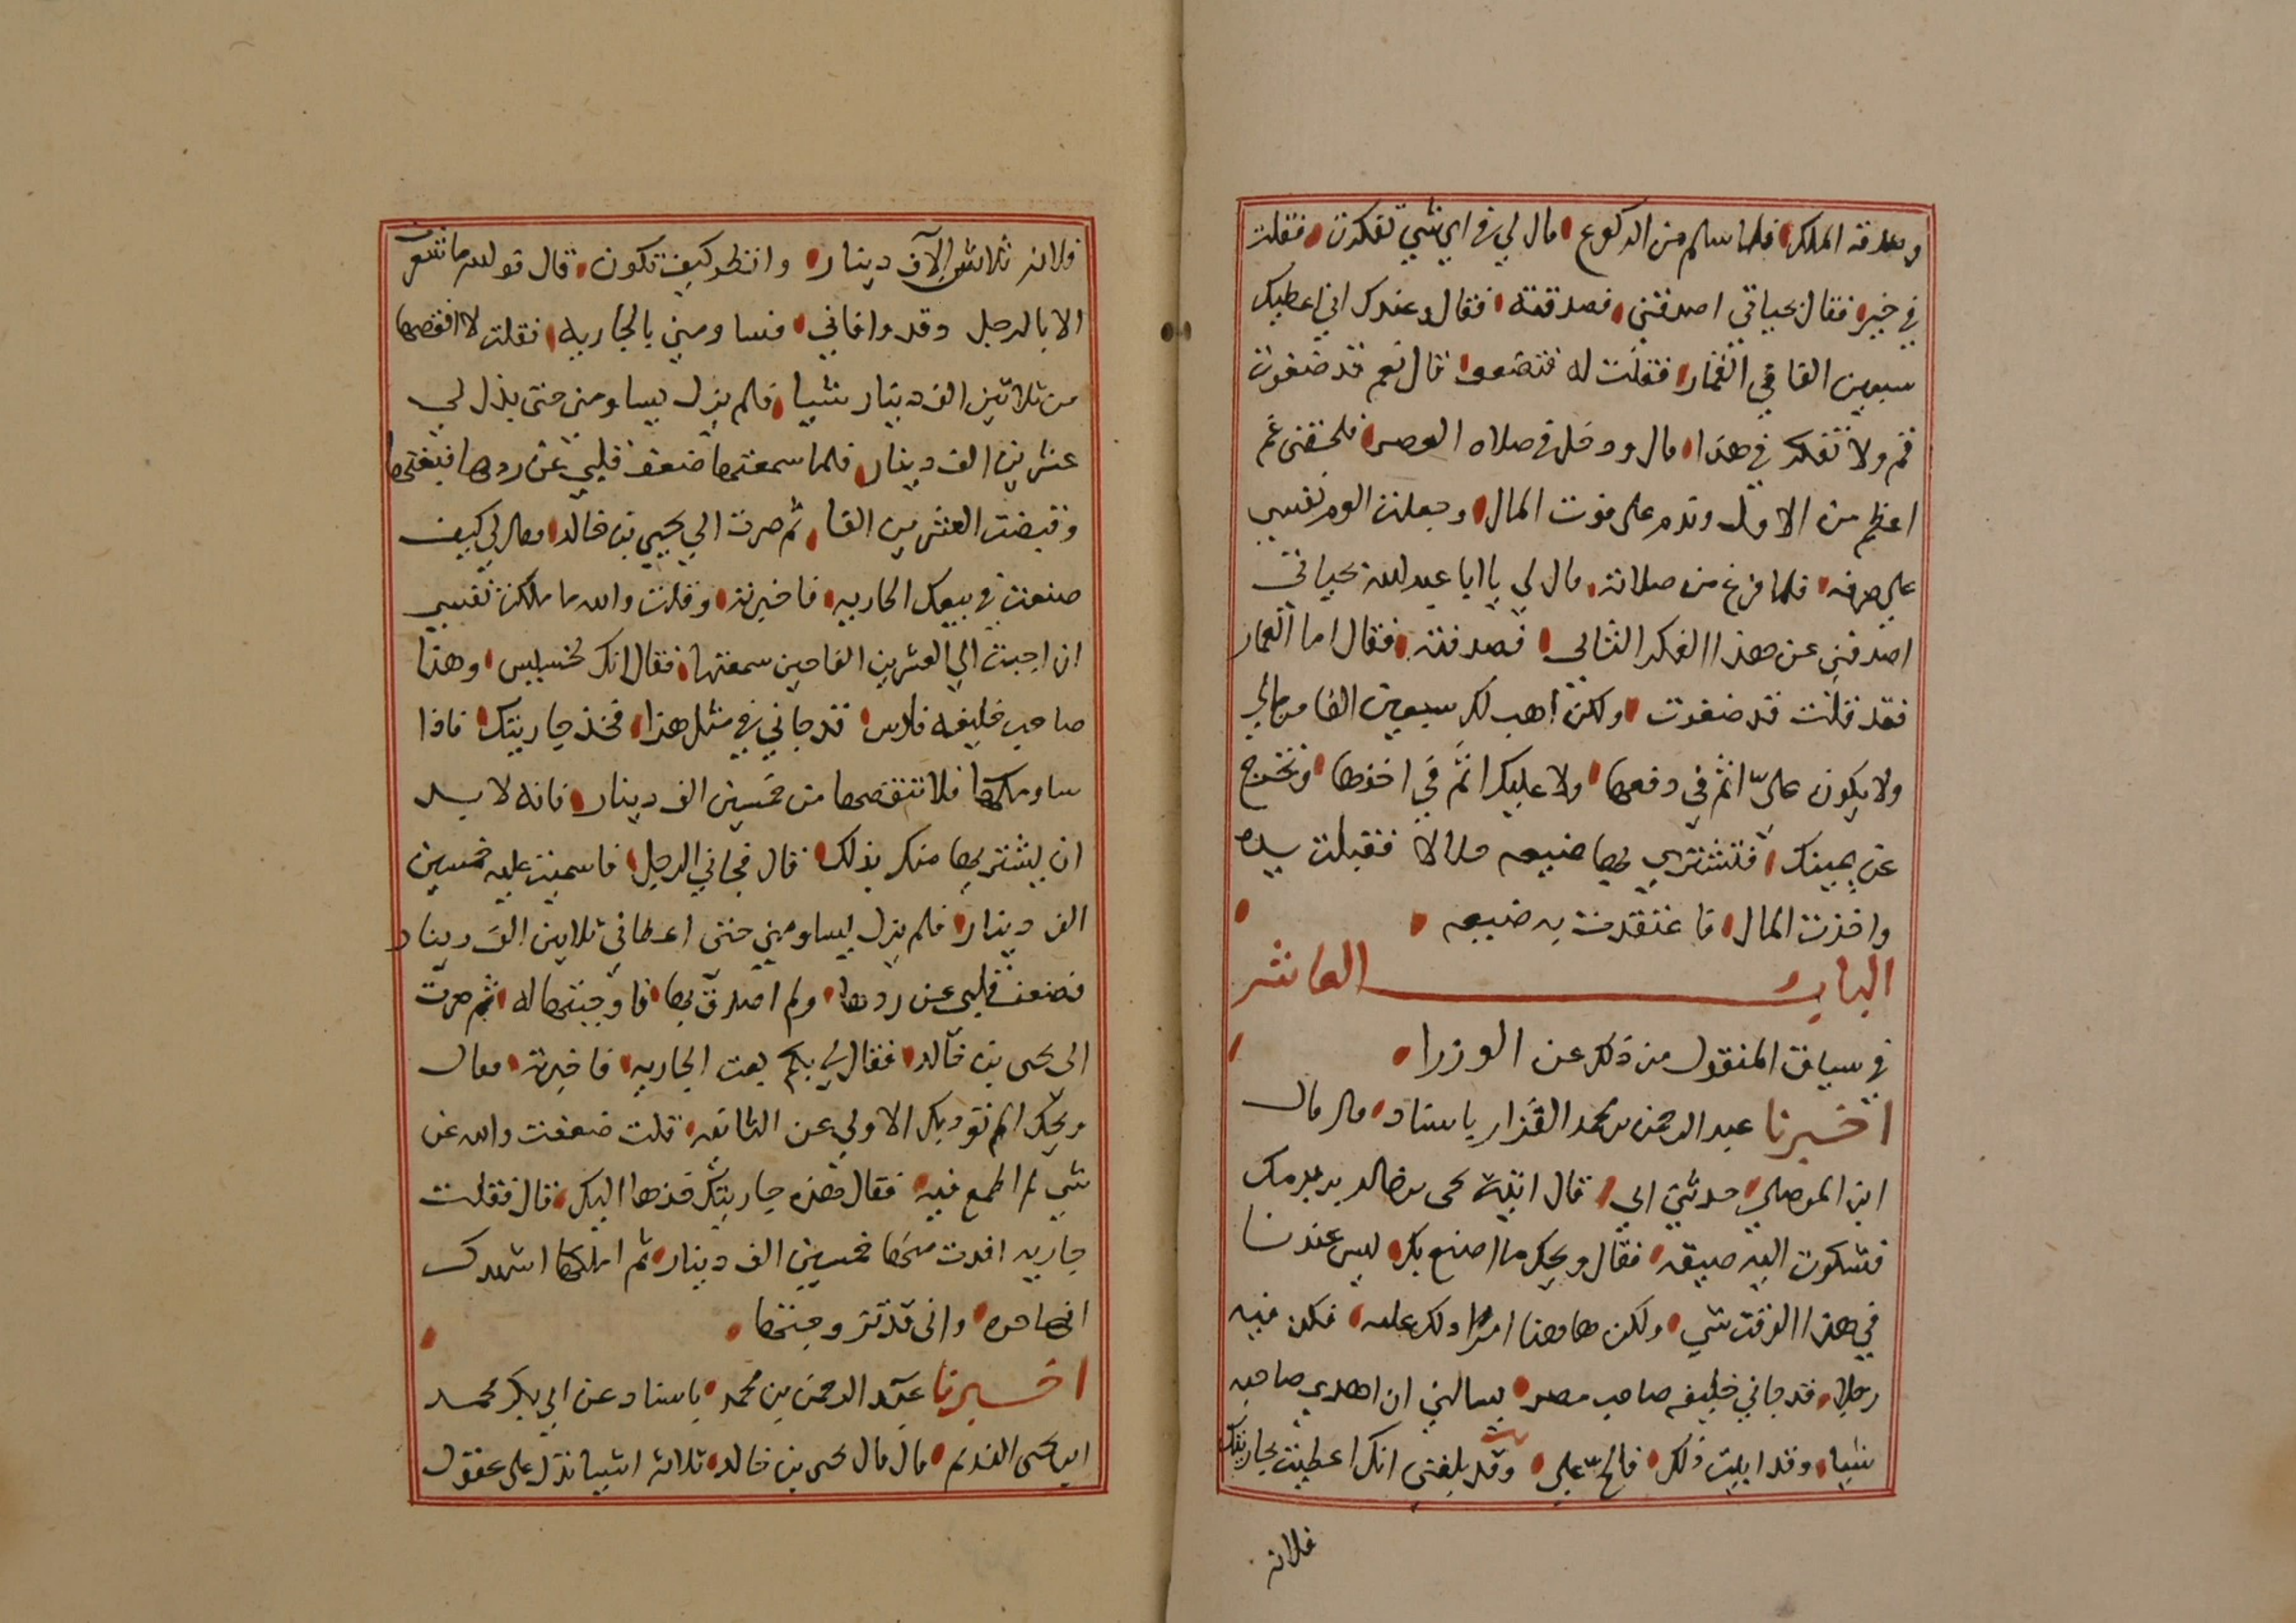 وبعد منه الملك فلما سلم من الركوع قال لي في اي شي تفكرت فقلت
في خير فقال بحياتي اصدقني فصدقته فقال وعندك اني اعطيك
سبعين الفا في القمار فقلت له فتضعوا قال نعم قد ضعوت
قم ولا تفكر في هذا قال ودخل في صلاه العصر فلحقني غم
اعظم من الاول وندم على فوت المال وجعلت الوم نفسي
على صرفه فلما فرغ من صلاته قال لي يا ابا عبد الله بحياتي
اصدقني عن هذا الفكر الثاني فصدقته فقال اما القمار
فقد قلت قد ضغوت ولكن اهب لك سبعين الفا من مالي
ولا يكون علي اثم في دفعها ولا عليك اثم في اخذها وتخرج
عن يمينك فتشتري بها ضيعه حلالا فقبلت يده
واخذت المال فاعتقدت به ضيعه
الباب العاشر
في سياقت المنقول من ذلك عن الوزرا
اخبرنا عبد الرحمن بن محمد القزار باسناد قال قال
ابن الموصلي حدثني ابي قال اتيت يحى بن خالد بن برمك
فشكوت اليه ضيقه فقال ويحك ما اصنع بك ليس عندنا
في هذا الوقت شي ولكن هاهنا امرا دلك عليه فكن فيه
رجلا قد جاني خليفه صاحب مصر يسالني ان اهدي صاحبه
شيا وقد ابيت ذلك فالح علي وقد بلغني انك اعطيت بجاريتك
فلانه
فلانه ثلاثين الآف دينار وانظر كيف تكون قال فوالله ما شعرت
الا بالرجل وقد وافاني فساومني بالجاريه فقلت لا انقصها
من ثلاثين الف دينار شيا فلم يزل يساومني حتى بذل لي
عشرين الف دينار فلما سمعتها ضعف قلبي عن ردها فبعتها
وقبضت العشرين الفا ثم صرت الي يحيي بن خالد فقال لي كيف
صنعت في بيعك الجاريه فاخبرته وقلت والله ما ملكت نفسي
ان اجبت الي العشرين الفا حين سمعتها فقال انك لخسيس وهذا
صاحب خليفه فارس قد جاني في مثل هذا فخذ جاريتك فاذا
ساومكها فلا تنقصها من خمسين الف دينار فانه لا بد
ان يشتريها منك بذلك قال فجاني الرجل فاسميت عليه خمسين
الف دينار فلم يزل يساومني حتى اعطاني ثلاثين الف دينار
فضعف قلبي عن ردها ولم اصدق بها فاوجبتها له ثم صرت
الى يحى بن خالد فقال لي بكم بعت الجاريه فاخبرته فقال
ويحك الم تودبك الاولي عن الثانيه قلت ضعفت والله عن
شي لم اطمع فيه فقال هذه جاريتك خذها اليك قال فقلت
جاريه افدت منها خمسين الف دينار ثم املكها اشهدك
انها حره واني قد تزوجتها
اخبرنا عبد الرحمن بن محمد باسناد عن ابي بكر محمد
ابن يحى النديم قال قال يحى بن خالد ثلاثه اشيا تدل على عقول